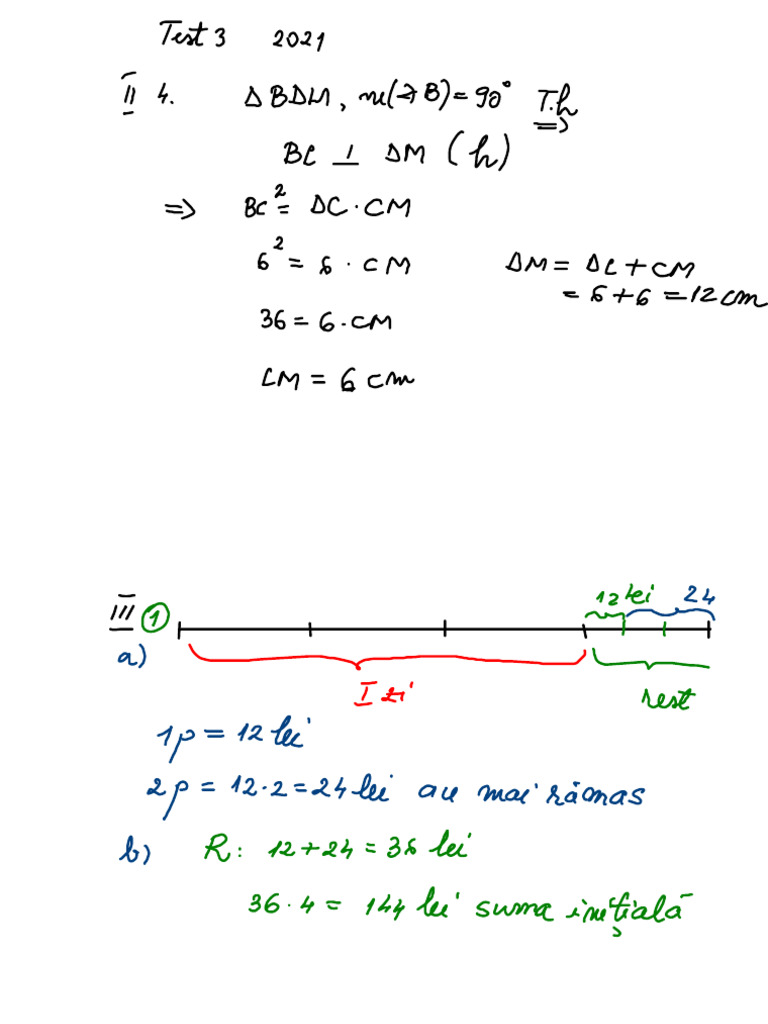 Test 3 2021
II 4. Δ BDM, m(∢B)=90° T.h =>
BC ⊥ DM (h)
=> BC² = DC·CM
6² = 6·CM DM = DC + CM
= 6+6 = 12 cm
36 = 6·CM
CM = 6 cm
12 lei 24
III 1
a)
I zi rest
1p = 12 lei
2p = 12·2 = 24 lei au mai rămas
b) R: 12+24 = 36 lei
36·4 = 144 lei suma inițială